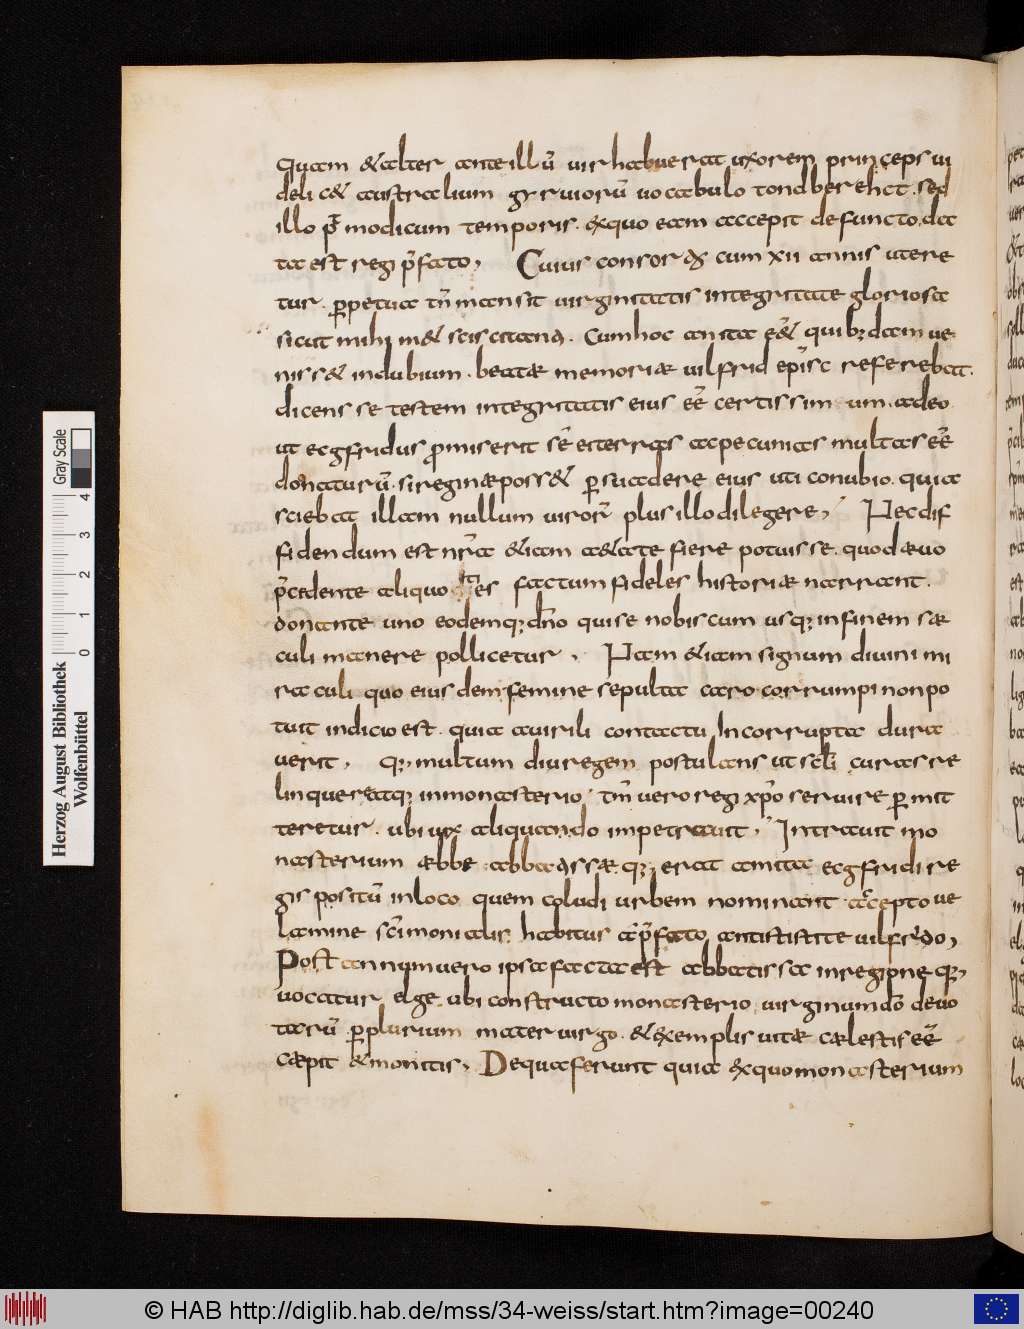 Quam & alter ante illū uir habuerat uxorem princeps ui
deli c& australium gyruiorū uocabulo tondberehct. sed
illo p̄ modicum temporis. &xquo eam accepit defuncto. da
ta est regi p̄fato, Cuius consor &x cum xii annis utere
tur. ꝑpetua tn̄ mansit uirginitatis integritate gloriosa
sicut mihi m& sciscitanti. Cum hoc an ita ēē& quibꝫdam ue
niss& indubium. beatae memoriae uilfrid episc referebat.
dicens se testem integritatis eius eē certissimum. adeo
ut ecgfridus promiserit sē ei terras ac pecunias multas eē
donaturū. si reginae poss& ꝑsuadere eius uti conubio. quia
sciebat illam nullum uirorū plus illo dilegere, Nec dif
fidendum est nr̄a &iam a&ate fiere potuisse. quod aeuo
p̄cedente aliquoties factum fideles historiae narrant.
donante uno eodemqꝫ dn̄o qui se nobiscum usqꝫ in finem sae
culi manere pollicetur, Nam &iam signum diuini mi
raculi quo eiusdem femine sepulta caro corrumpi non po
tuit indicio est. quia a uirili contactu Incorrupta dura
uerit, qꝫ, multum diu regem postulans ut scl̄i curas re
linquere atqꝫ in monasterio. tm̄ uero regi xp̄o seruire ꝑmit
teretur. ubi uix aliquando impetrauit, Intrauit mo
nasterium aebbe abbatissae. qꝫ, erat amita ecgfridi re
gis positū in loco quem coludi urbem nominant accepto ue
lamine sc̄imonialis habitus a p̄fato antistite uilfrido,
Post annum uero ipsa facta est abbatissa in regione qꝫ,
uocatur elge. ubi constructo monasterio uirginum dō deuo
tarū ꝑplurium mater uirgo. & &xemplis uitae caelestis eē
caepit & monitis, De qua ferunt quia &x quo monasterium
Herzog August Bibliothek
Wolfenbüttel
0 1 2 3 4
Gray Scale
© HAB http://diglib.hab.de/mss/34-weiss/start.htm?image=00240